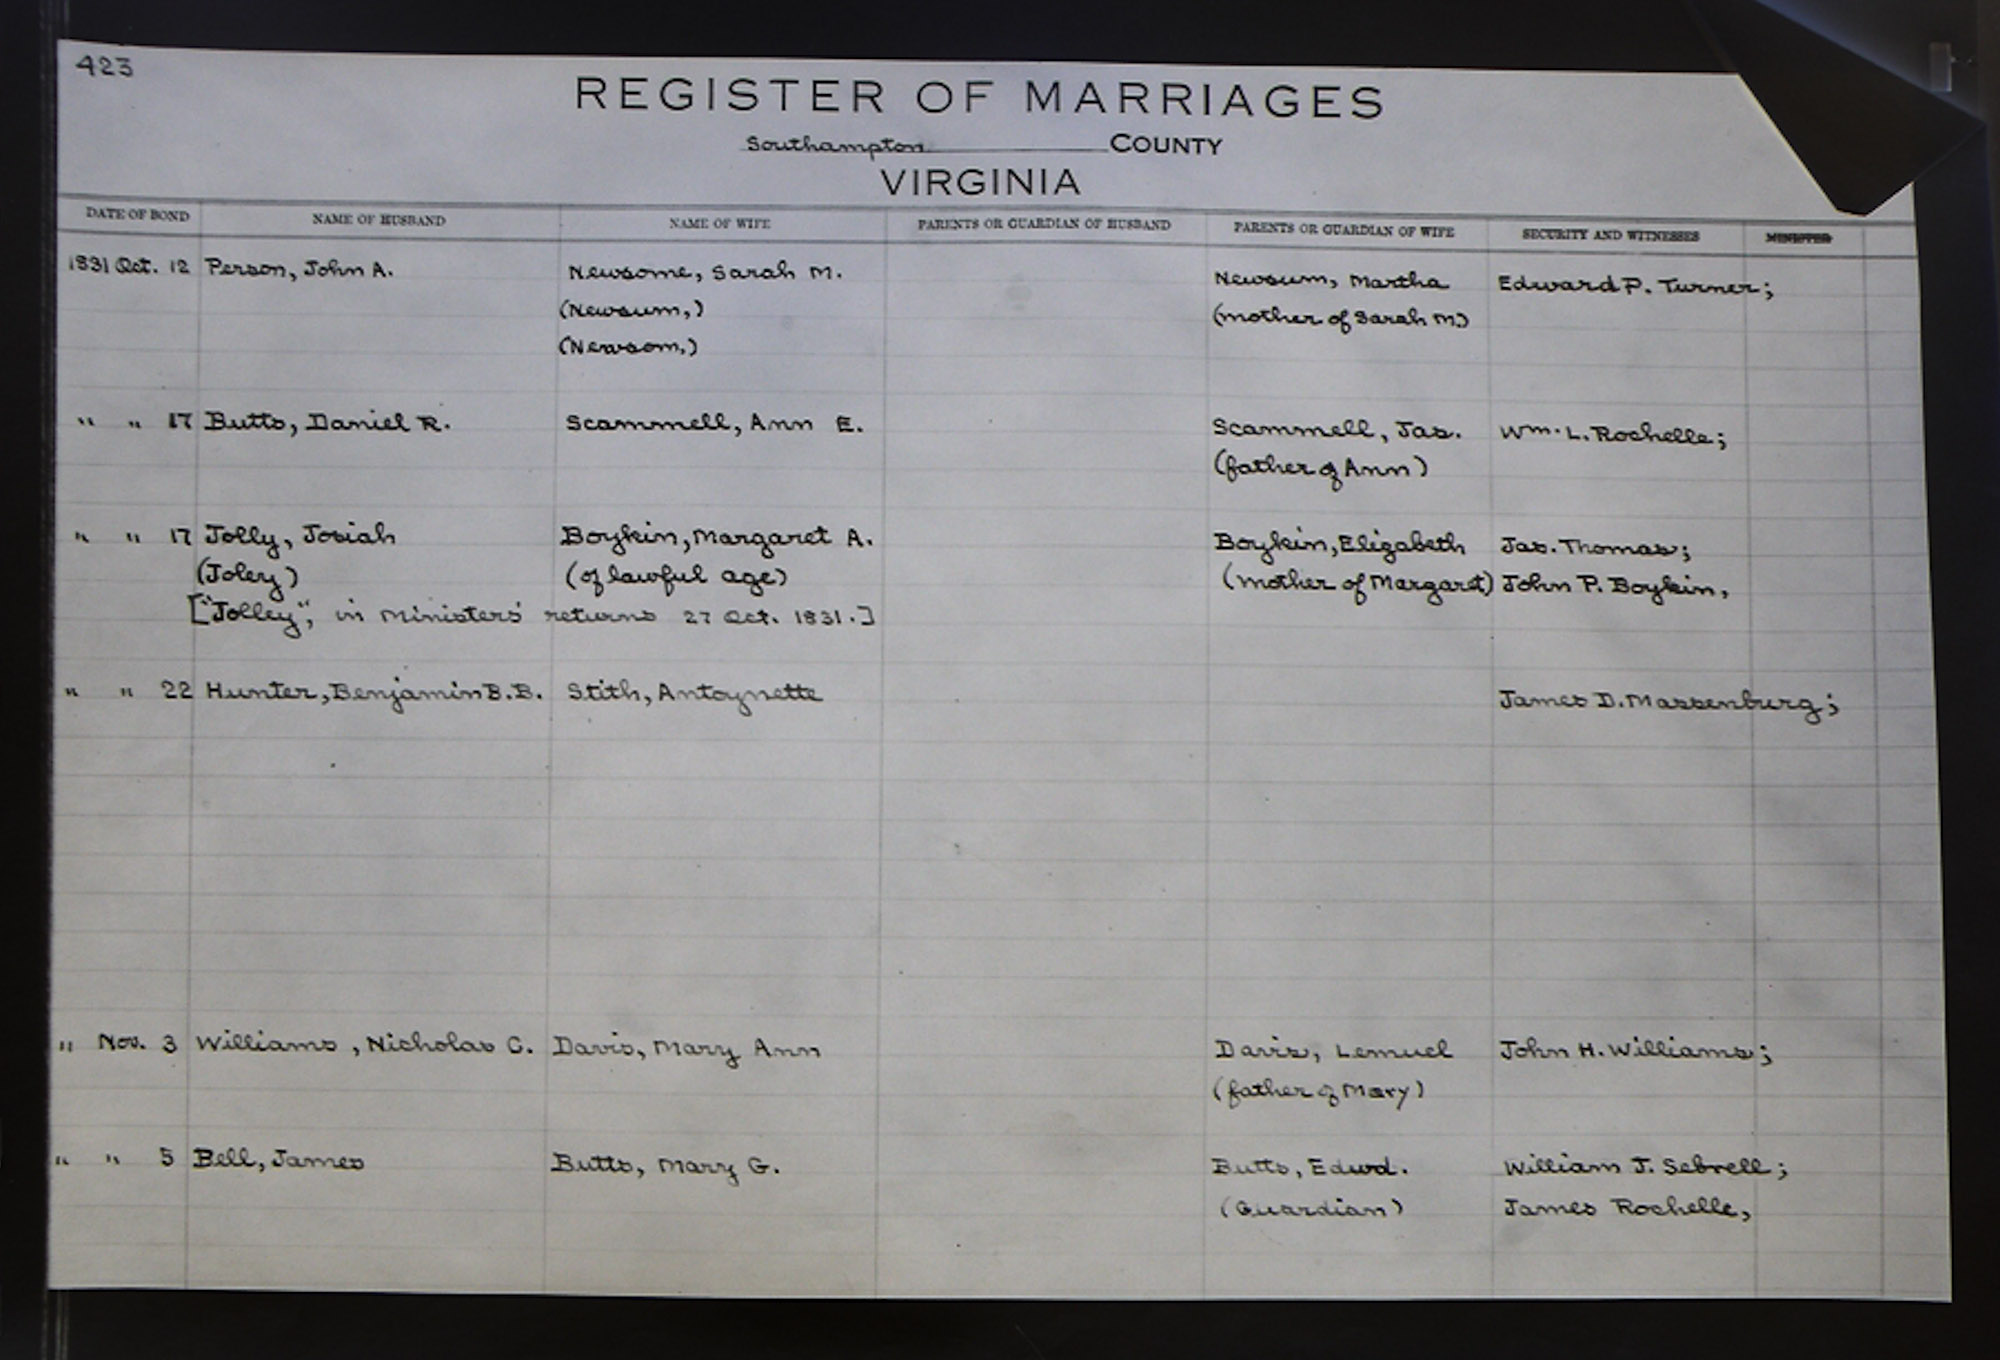 423
REGISTER OF MARRIAGES
Southampton COUNTY
VIRGINIA
DATE OF BOND NAME OF HUSBAND NAME OF WIFE PARENTS OR GUARDIAN OF HUSBAND PARENTS OR GUARDIAN OF WIFE SECURITY AND WITNESSES MINISTER
1831 Oct. 12 Person, John A. Newsome, Sarah M. Newsum, Martha Edward P. Turner;
(Newsum,) (mother of Sarah M.)
(Newsom,)
" " 17 Butts, Daniel R. Scammell, Ann E. Scammell, Jas. Wm. L. Rochelle;
(father of Ann)
" " 17 Jolly, Josiah Boykin, Margaret A. Boykin, Elizabeth Jas. Thomas;
(Joley) (of lawful age) (mother of Margaret) John P. Boykin,
["Jolley", in Ministers' returns 27 Oct. 1831.]
" " 22 Hunter, Benjamin B.B. Stith, Antoynette James D. Massenburg;
" Nov. 3 Williams, Nicholas C. Davis, Mary Ann Davis, Lemuel John H. Williams;
(father of Mary)
" " 5 Bell, James Butts, Mary G. Butts, Edwd. William J. Sebrell;
(Guardian) James Rochelle,